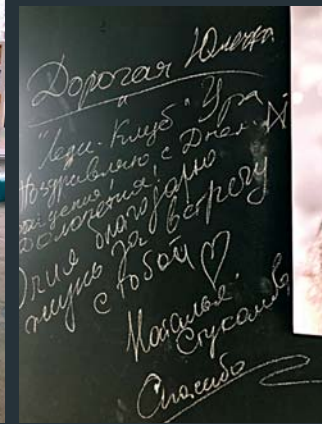 Дорогая Юлечка
и
"Леди-Клуб" Ура
Поздравляю с Днем
рождения!
благодарю
жизнь за встречу
с тобой ♡
Наталья
Спасибо